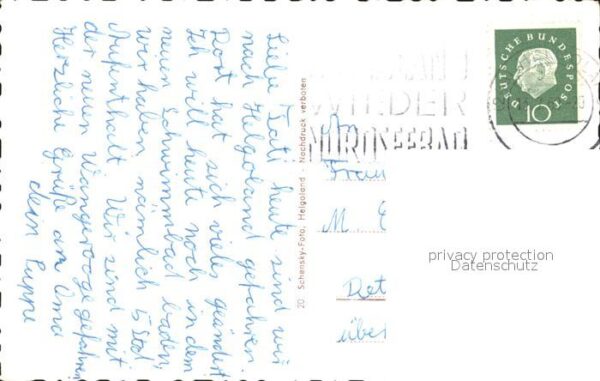 Liebe Tati heute sind wir
nach Helgoland gefahren.
Dort hat sich vieles geändert.
Ich will heute noch in dem
neuen Schwimmbad baden,
wir haben nämlich 5 Std.
Aufenthalt. Wir sind mit
der neuen Wangerooge gefahren
Herzliche Grüße an Oma
dein Puppe
20 Schensky-Foto, Helgoland - Nachdruck verboten
WIEDER
NORDSEEBAD
DEUTSCHE BUNDESPOST
10
Frau
M. E
Det
über
privacy protection
Datenschutz